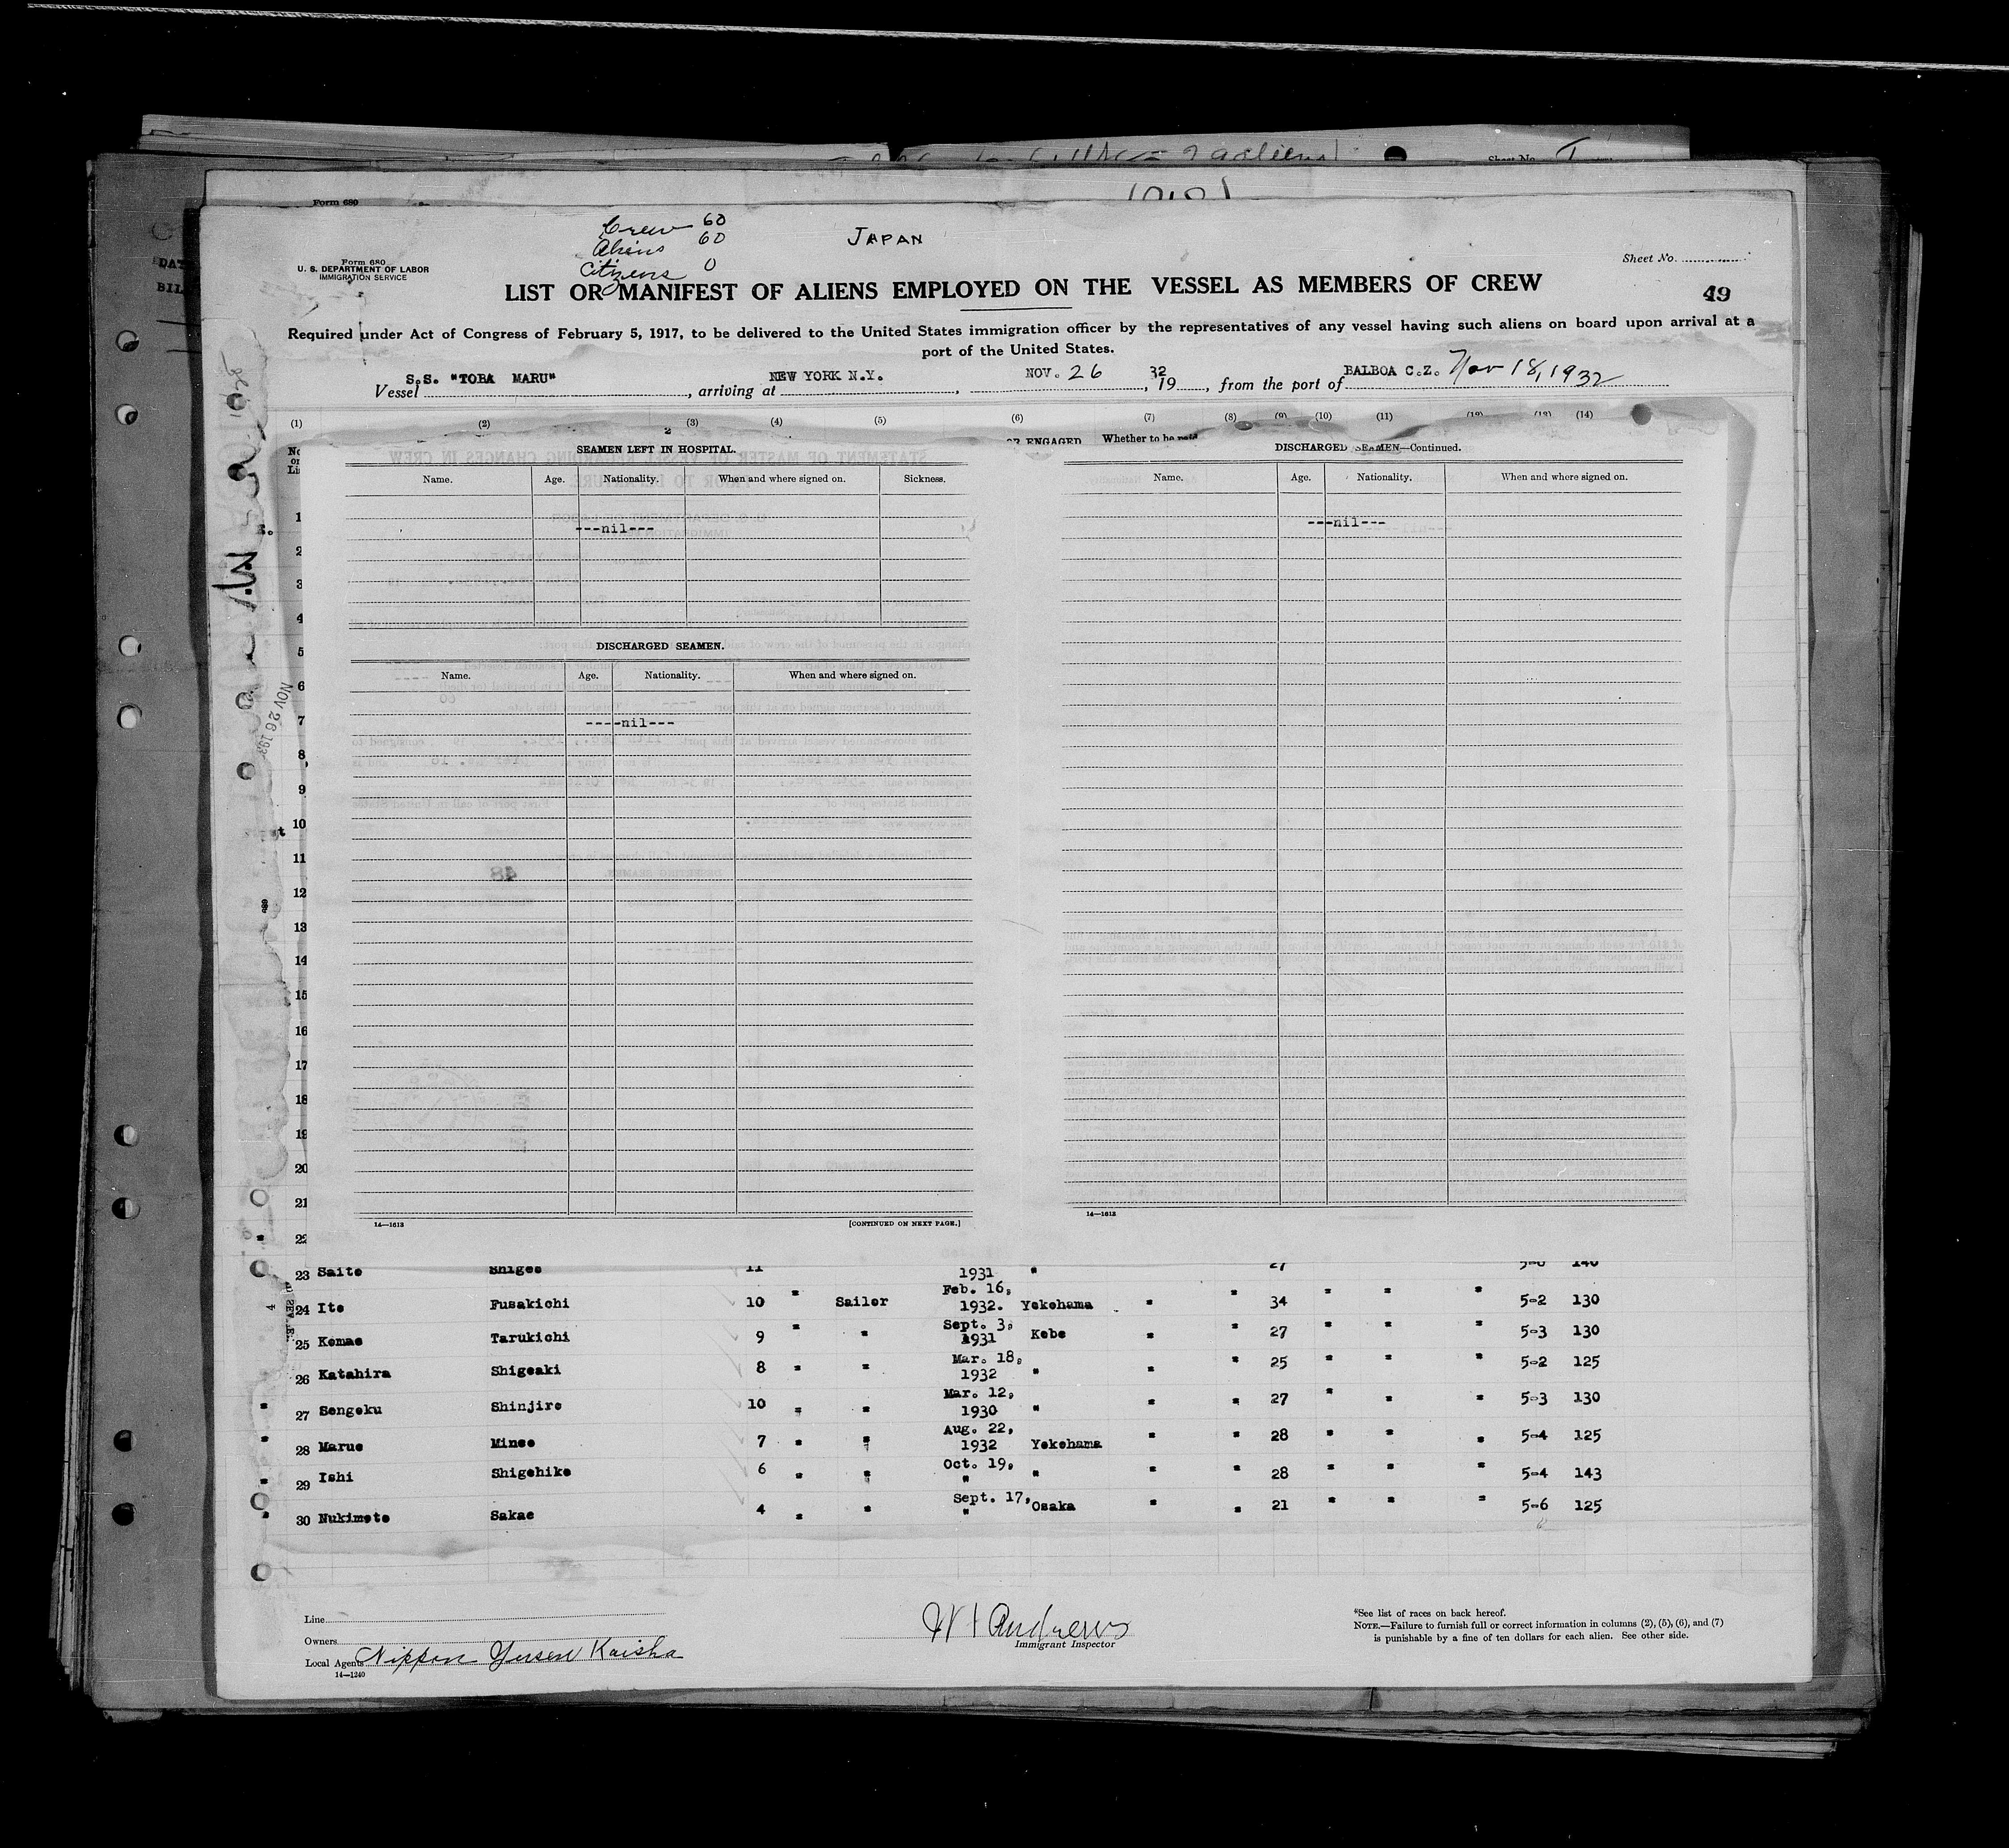 Form 680
Sheet No.
Crew 60
Aliens 60
Citizens 0
JAPAN
Form 680
U. S. DEPARTMENT OF LABOR
IMMIGRATION SERVICE
Sheet No.
LIST OR MANIFEST OF ALIENS EMPLOYED ON THE VESSEL AS MEMBERS OF CREW
49
Required under Act of Congress of February 5, 1917, to be delivered to the United States immigration officer by the representatives of any vessel having such aliens on board upon arrival at a
port of the United States.
Vessel S.S. "TOBA MARU", arriving at NEW YORK N.Y., NOV. 26, 1932, from the port of BALBOA C.Z. Nov 18, 1932
(1) (2) (3) (4) (5) (6) (7) (8) (9) (10) (11) (12) (13) (14)
ENGAGED Whether to be paid
SEAMEN LEFT IN HOSPITAL.
Name. Age. Nationality. When and where signed on. Sickness.
---nil---
DISCHARGED SEAMEN.
Name. Age. Nationality. When and where signed on.
----nil---
14—1613 [CONTINUED ON NEXT PAGE.]
DISCHARGED SEAMEN—Continued.
Name. Age. Nationality. When and where signed on.
---nil---
14—1613
1
2
3
4
5
6
7
8
9
10
11
12
13
14
15
16
17
18
19
20
21
22
NOV 26 193
23 Saito Shigeo 11 1931 " 27 140
24 Ito Fusakichi 10 " Sailor Feb. 16, 1932. Yokohama " " 34 " " " 5-2 130
25 Komae Tarukichi 9 " " Sept. 3, 1931 Kobe " " 27 " " " 5-3 130
26 Katahira Shigeaki 8 " " Mar. 18, 1932 " " " 25 " " " 5-2 125
27 Sengoku Shinjiro 10 " " Mar. 12, 1930 " " " 27 " " " 5-3 130
28 Maruo Mineo 7 " " Aug. 22, 1932 Yokohama " " 28 " " " 5-4 125
29 Ishi Shigehiko 6 " " Oct. 19, " " " " 28 " " " 5-4 143
30 Nukimoto Sakae 4 " " Sept. 17, " Osaka " " 21 " " " 5-6 125
Line
Owners
Local Agents Nippon Yusen Kaisha
14—1240
W H Andrews
Immigrant Inspector
*See list of races on back hereof.
NOTE.—Failure to furnish full or correct information in columns (2), (5), (6), and (7)
is punishable by a fine of ten dollars for each alien. See other side.